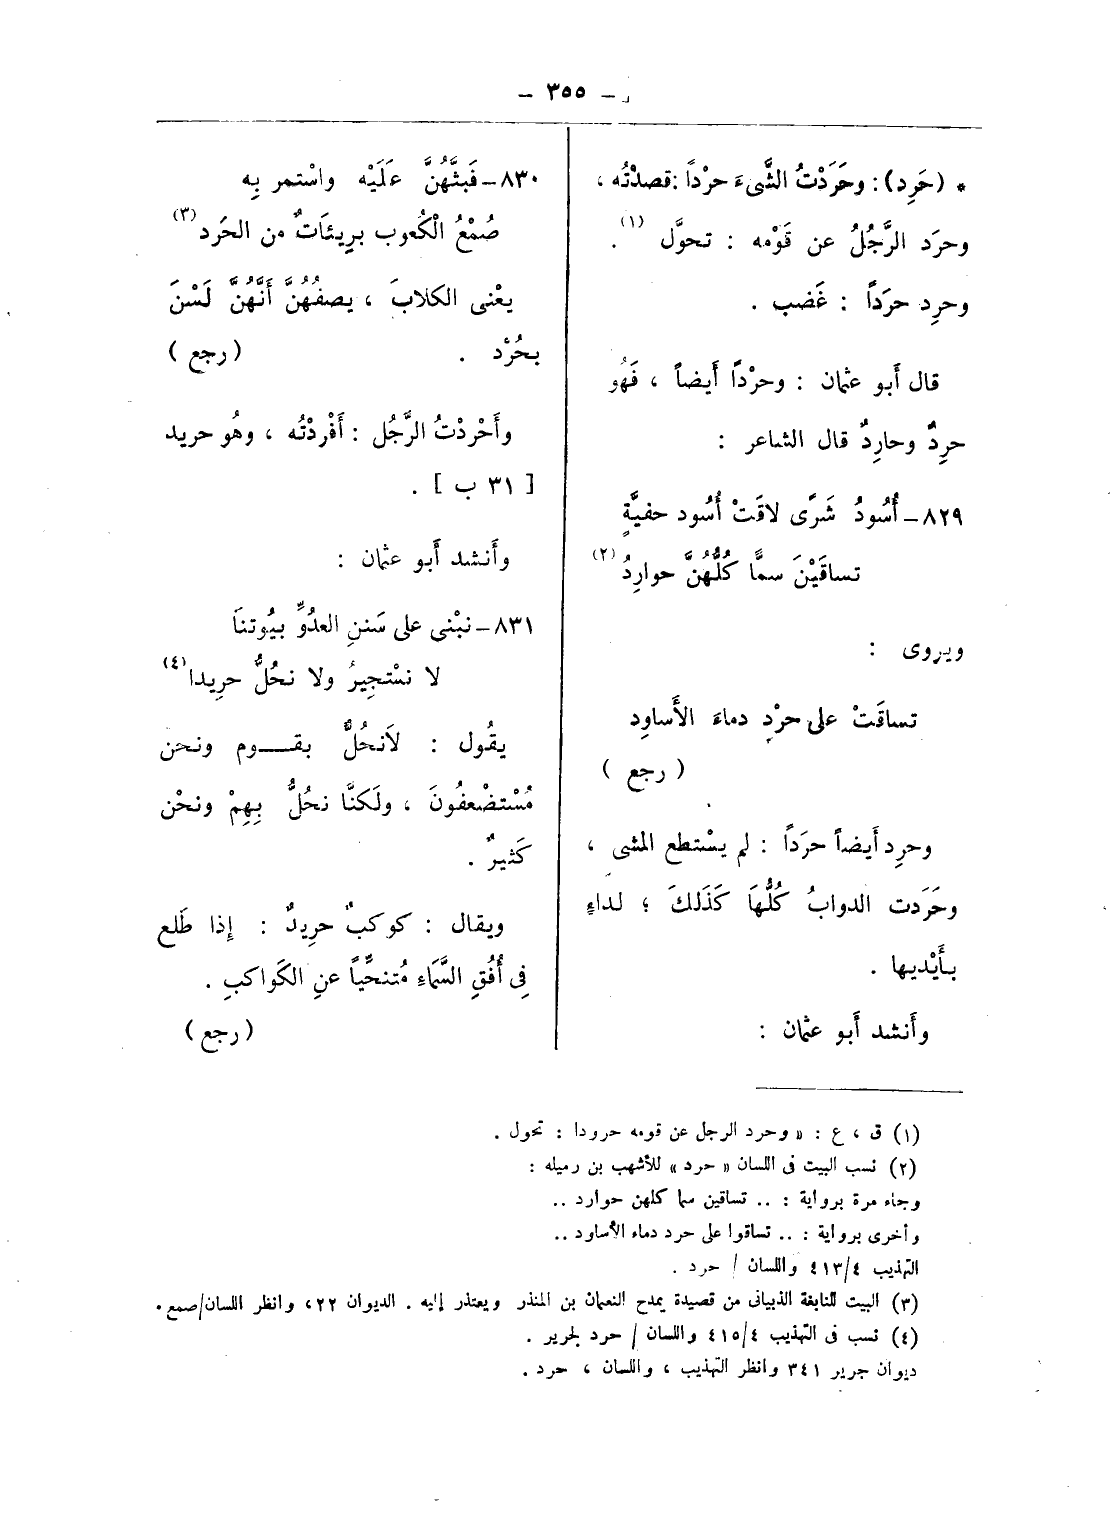 — ٣٥٥ —
* (حَرِد): وحَرَدْتُ الشَّىءَ حرْداً: قصدْتُه ،
وحرَد الرَّجُلُ عن قَوْمه : تحوَّل (١) .
وحرِد حرَداً : غَضب .
قال أَبو عثمان : وحرْداً أَيضاً ، فَهُو
حرِدٌ وحارِدٌ قال الشاعر :
٨٢٩ – أُسُودُ شَرًى لاقَتْ أُسُود حفيَّةٍ
تساقَيْنَ سمًّا كُلُّهُنَّ حوارِدُ (٢)
ويروى :
تساقَتْ على حرْدٍ دماءَ الأَساوِد
( رجع )
وحرِد أَيضاً حرَداً : لم يسْتطع المشى ،
وحَرَدت الدوابُ كُلُّهَا كَذَلكَ ؛ لداءٍ
بأَيْديها .
وأَنشد أَبو عثمان :
٨٣٠ – فَبثَّهُنَّ عَلَيْه واسْتمر بِه
صُمْعُ الْكُعوب برِيئاتٌ من الحَرد (٣)
يعْنى الكلابَ ، يصفُهُنَّ أَنَّهُنَّ لَسْنَ
بحُرْد . ( رجع )
وأَحْردْتُ الرَّجُل : أَفْردْتُه ، وهُو حريد
[ ٣١ ب ] .
وأَنشد أَبو عثمان :
٨٣١ – نبْنى على سَننِ العدُوِّ بيُوتنَا
لا نسْتجِيرُ ولا نحُلُّ حرِيدا (٤)
يقُول : لاَنحُلُّ بقــوم ونحن
مُسْتضْعفُونَ ، ولَكنَّا نحُلُّ بِهِمْ ونحْن
كَثيرٌ .
ويقال : كوكبٌ حرِيدٌ : إِذا طَلع
فِى أُفُقِ السَّمَاءِ مُتنحِّياً عنِ الكَواكبِ .
( رجع )
(١) ق ، ع : « وحرد الرجل عن قومه حرودا : تحول .
(٢) نسب البيت فى اللسان « حرد » للأشهب بن رميله :
وجاء مرة برواية : .. تساقين سما كلهن حوارد ..
وأخرى برواية : .. تساقوا على حرد دماء الأساود ..
التهذيب ٤/٤١٣ واللسان / حرد .
(٣) البيت للنابغة الذبيانى من قصيدة يمدح النعمان بن المنذر ويعتذر إليه . الديوان ٢٢ ، وانظر اللسان/صمع .
(٤) نسب فى التهذيب ٤/٤١٥ واللسان / حرد لجرير .
ديوان جرير ٣٤١ وانظر التهذيب ، واللسان ، حرد .